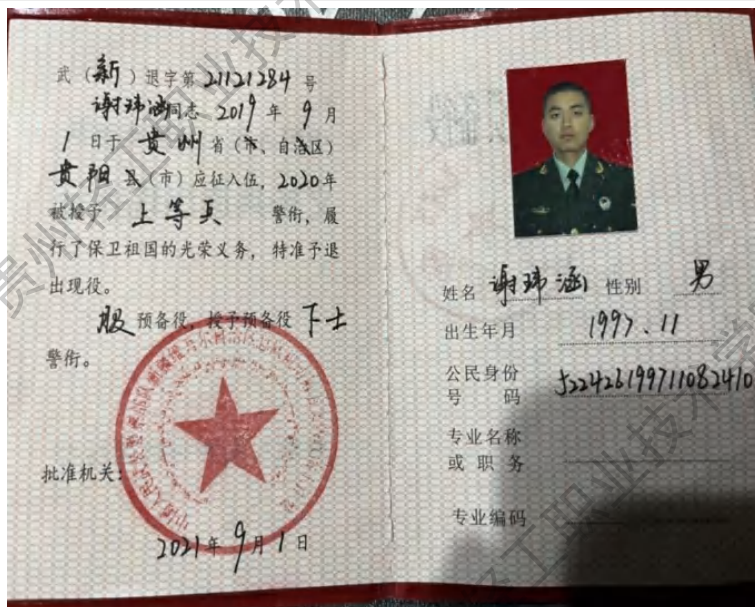 武（新）退字第21121284号
谢玮涵同志 2019年9月
1日于贵州省（市、自治区）
贵阳县（市）应征入伍，2020年
被授予 上等兵 警衔，履
行了保卫祖国的光荣义务，特准予退
出现役。
服预备役，授予预备役下士
警衔。
批准机关：
2021年9月1日
姓名 谢玮涵 性别 男
出生年月 1997.11
公民身份
号码 522426199711082410
专业名称
或职务
专业编码